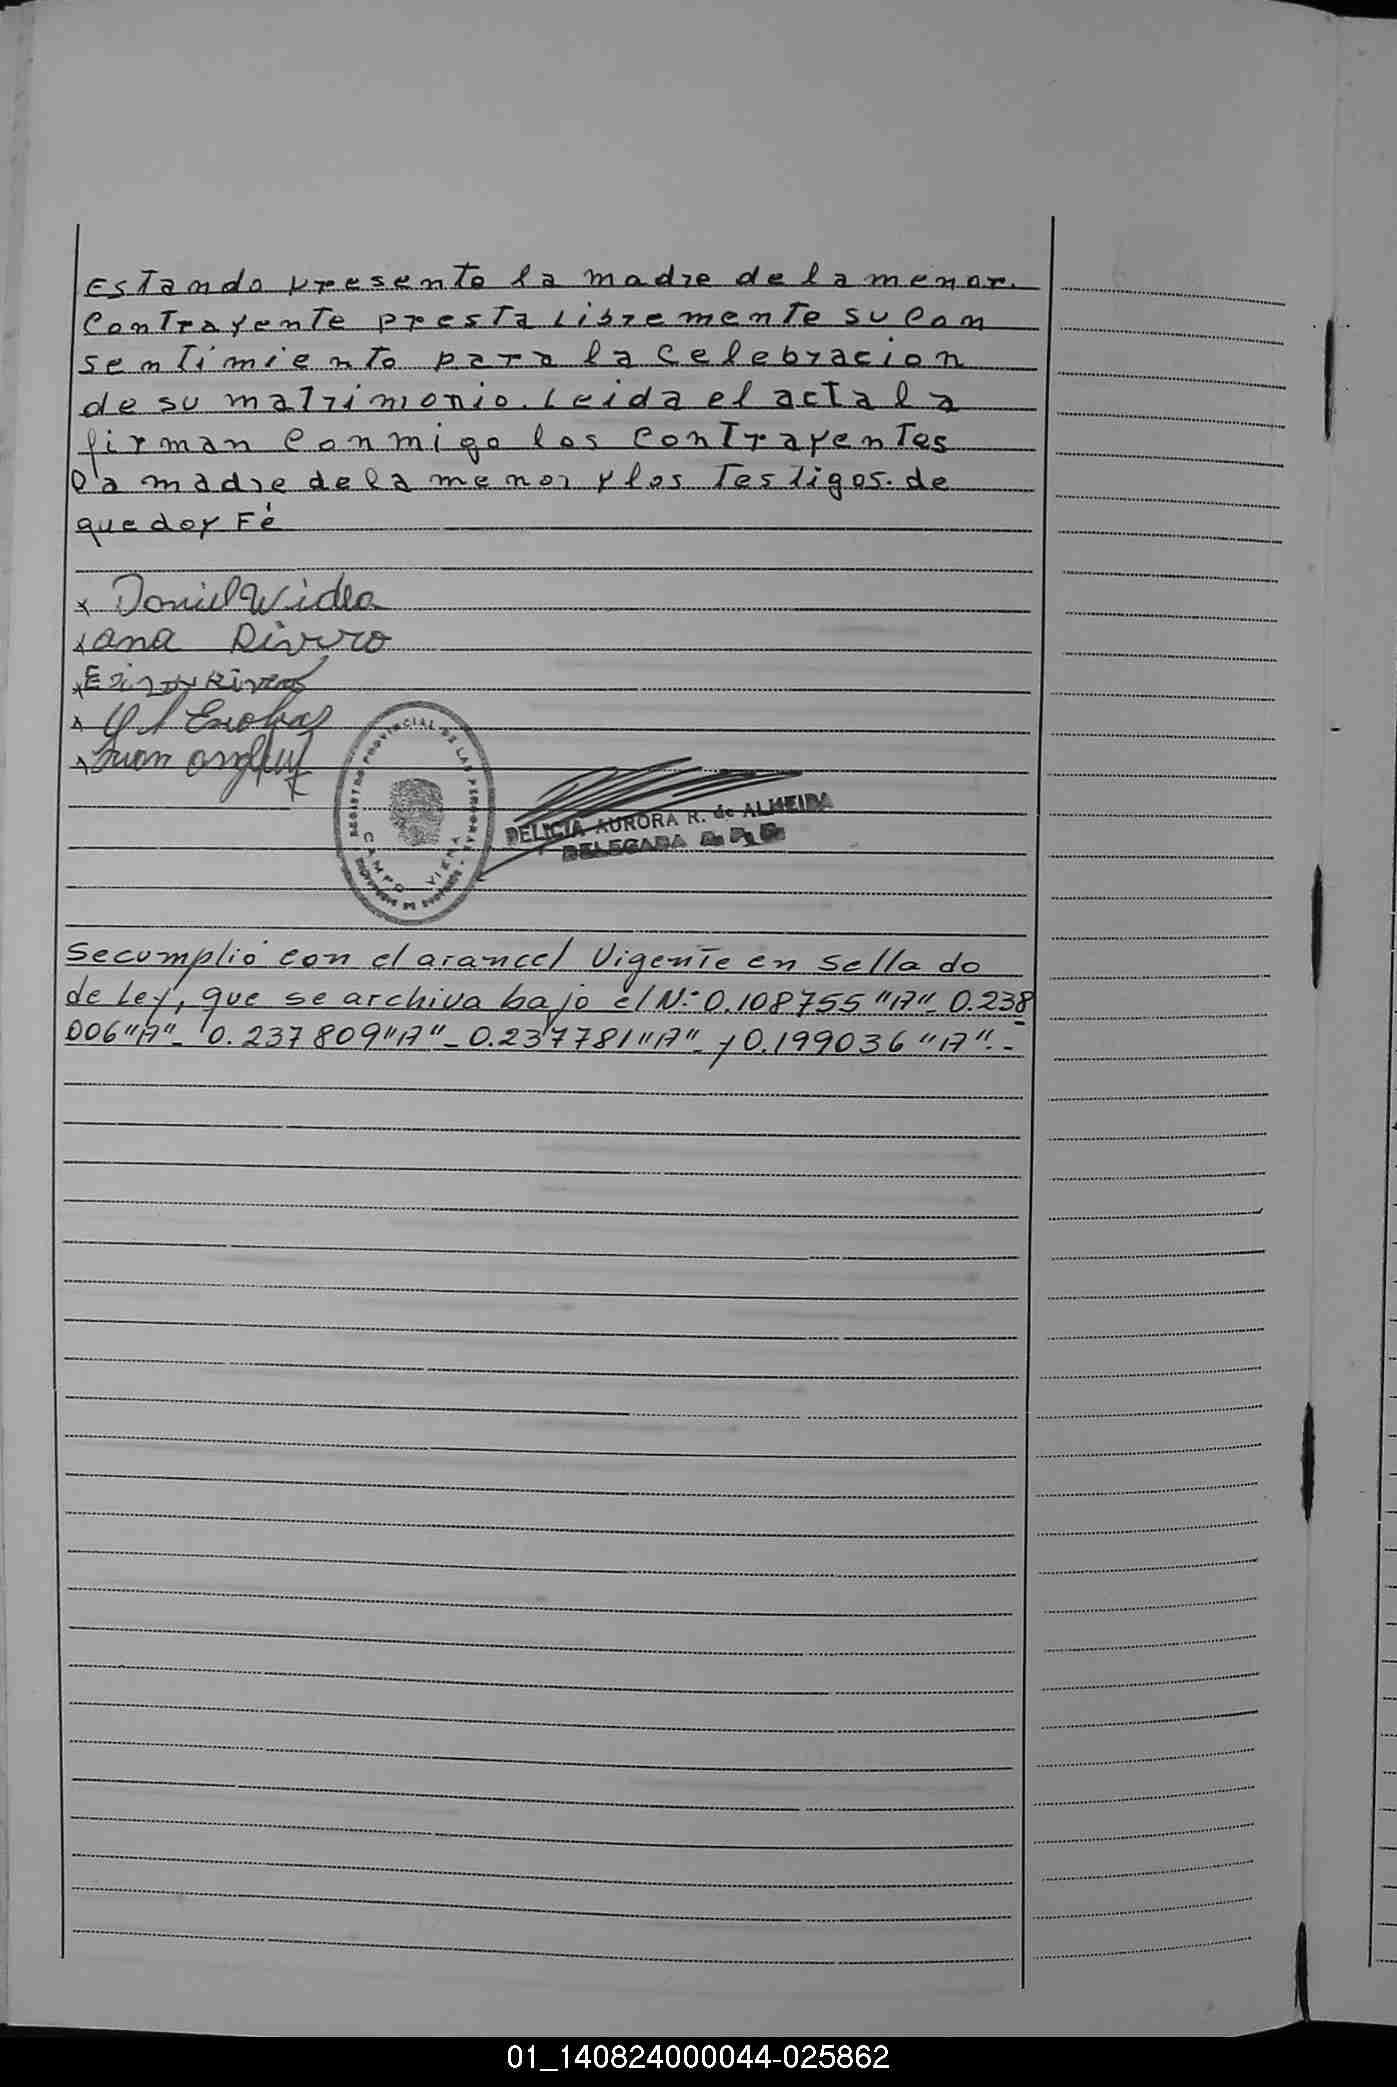 Estando presente la madre de la menor.
Contrayente presta libremente su con
sentimiento para la celebracion
de su matrimonio. Leida el acta la
firman conmigo los contrayentes
la madre de la menor y los testigos. de
que doy Fé
x Daniel Widla
x ana Rivero
x
x Escobar
x Juan
REGISTRO PROVINCIAL DE LAS PERSONAS
CAMPO VIERA
DELICIA AURORA R. de ALMEIDA
DELEGADA
Se cumplió con el arancel Vigente en Sellado
de Ley, que se archiva bajo el N.º 0.108755 "A" - 0.238
006 "A" - 0.237809 "A" - 0.237781 "A" - y 0.199036 "A". -
01_140824000044-025862